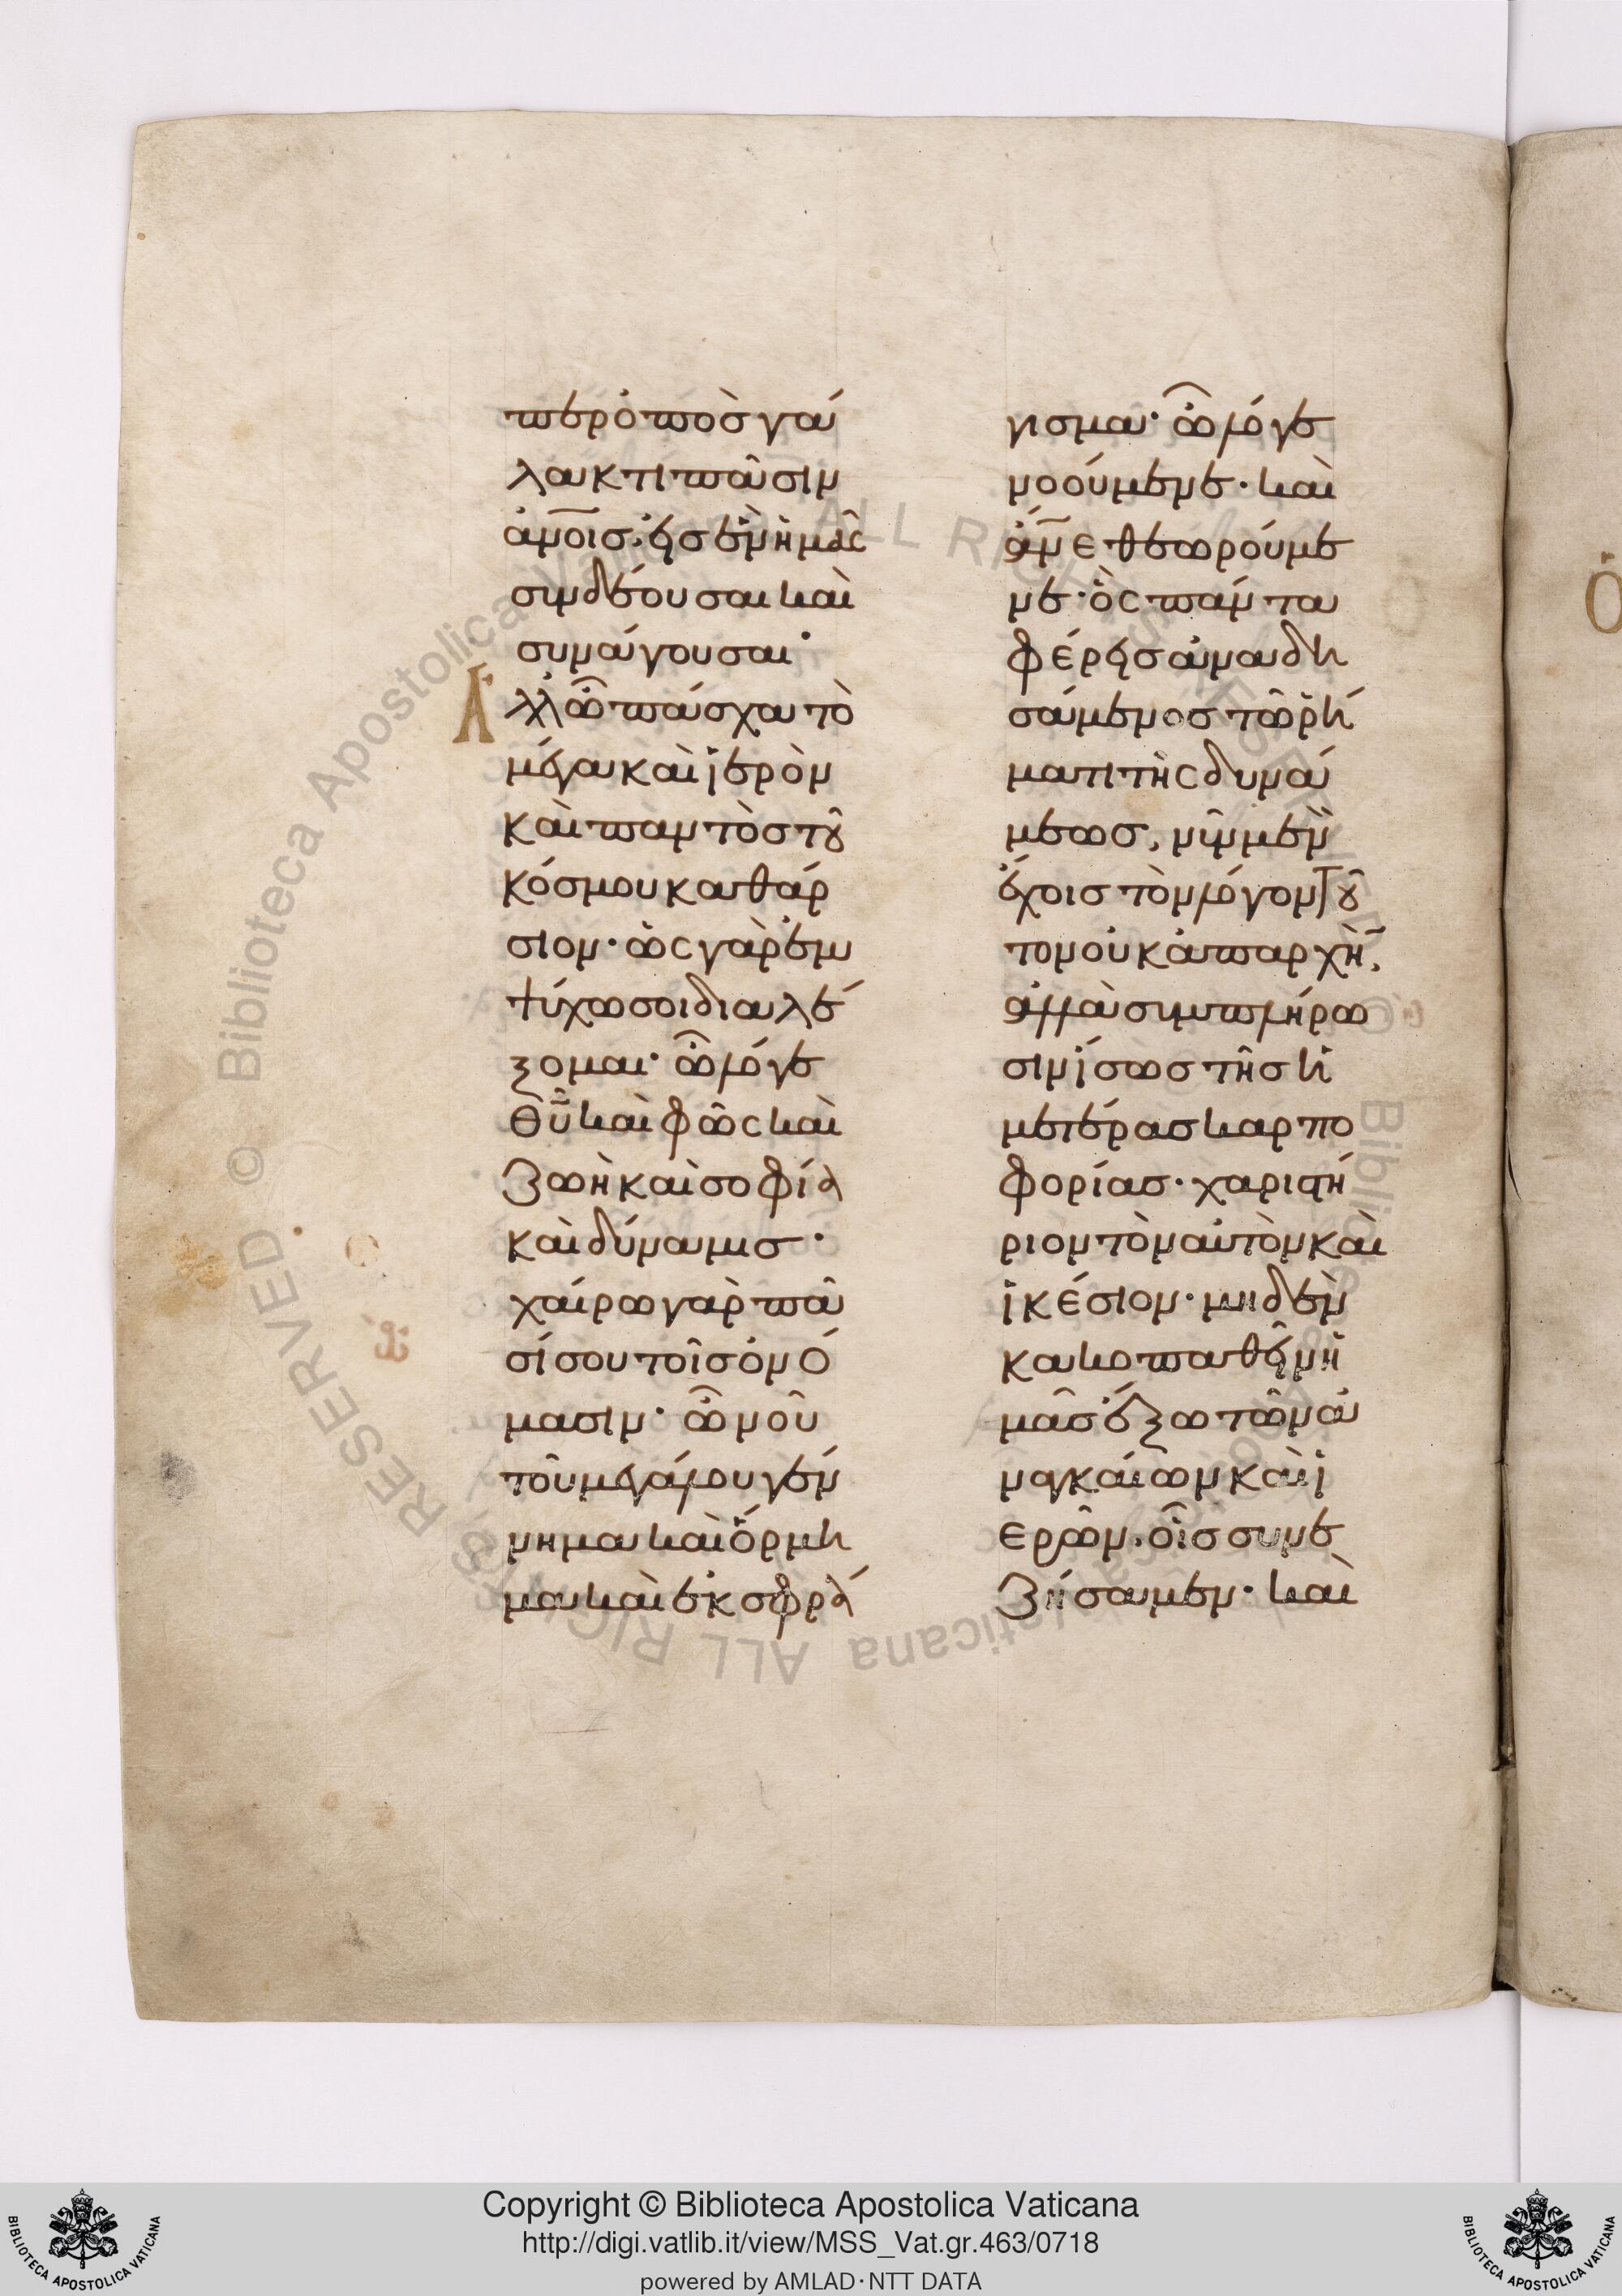 περόποὸσ γα
λακτιπᾶσιν
ἀν̅οισ, εἰσ ἓν ἡμᾶς
συνδέουσα καὶ
συνάγουσα·
Ἀ
λλ' ὦ πάσχα τὸ
μέγα καὶ ἱερὸν
καὶ παντὸσ τοῦ
κόσμου καθάρ
σιον· ὡς γὰρ ἐμ
ψύχω σοι διαλέ
ξομαι· ὦ λόγε
θυ̅ καὶ φῶς καὶ
ζωὴ καὶ σοφία
καὶ δύναμισ·
χαίρω γὰρ πᾶ
σί σου τοῖσ ὀνό
μασιν· ὦ νοῦ
τοῦ μεγάλου γέν
νημα καὶ ὅρμη
μα καὶ ἐκσφρά
γισμα· ὦ λόγε
νοούμενε· καὶ
ἄν̅ε θεωρούμε
νε· ὃς πάντα
φέρεισ ἀναδη
σάμενοσ τῶ ῥή
ματι τῆς δυνά
μεωσ, νῦν μὲν
ἔχοισ τὸν λόγον τοῦ
τον οὐκ ἀπαρχὴν,
ἀλλὰ συμπλήρω
σιν ἴσωσ τῆσ ἡ
μετέρασ καρπο
φορίασ· χαριστή
ριον τὸν αὐτὸν καὶ
ἱκέσιον· μηδὲν
κακοπαθεῖν ἡ
μᾶσ ἔξω τῶν ἀ
ναγκαίων καὶ ἱ
ερῶν. οἷσ συνε
ζήσαμεν· καὶ
Copyright © Biblioteca Apostolica Vaticana
http://digi.vatlib.it/view/MSS_Vat.gr.463/0718
powered by AMLAD·NTT DATA
BIBLIOTECA APOSTOLICA VATICANA
BIBLIOTECA APOSTOLICA VATICANA